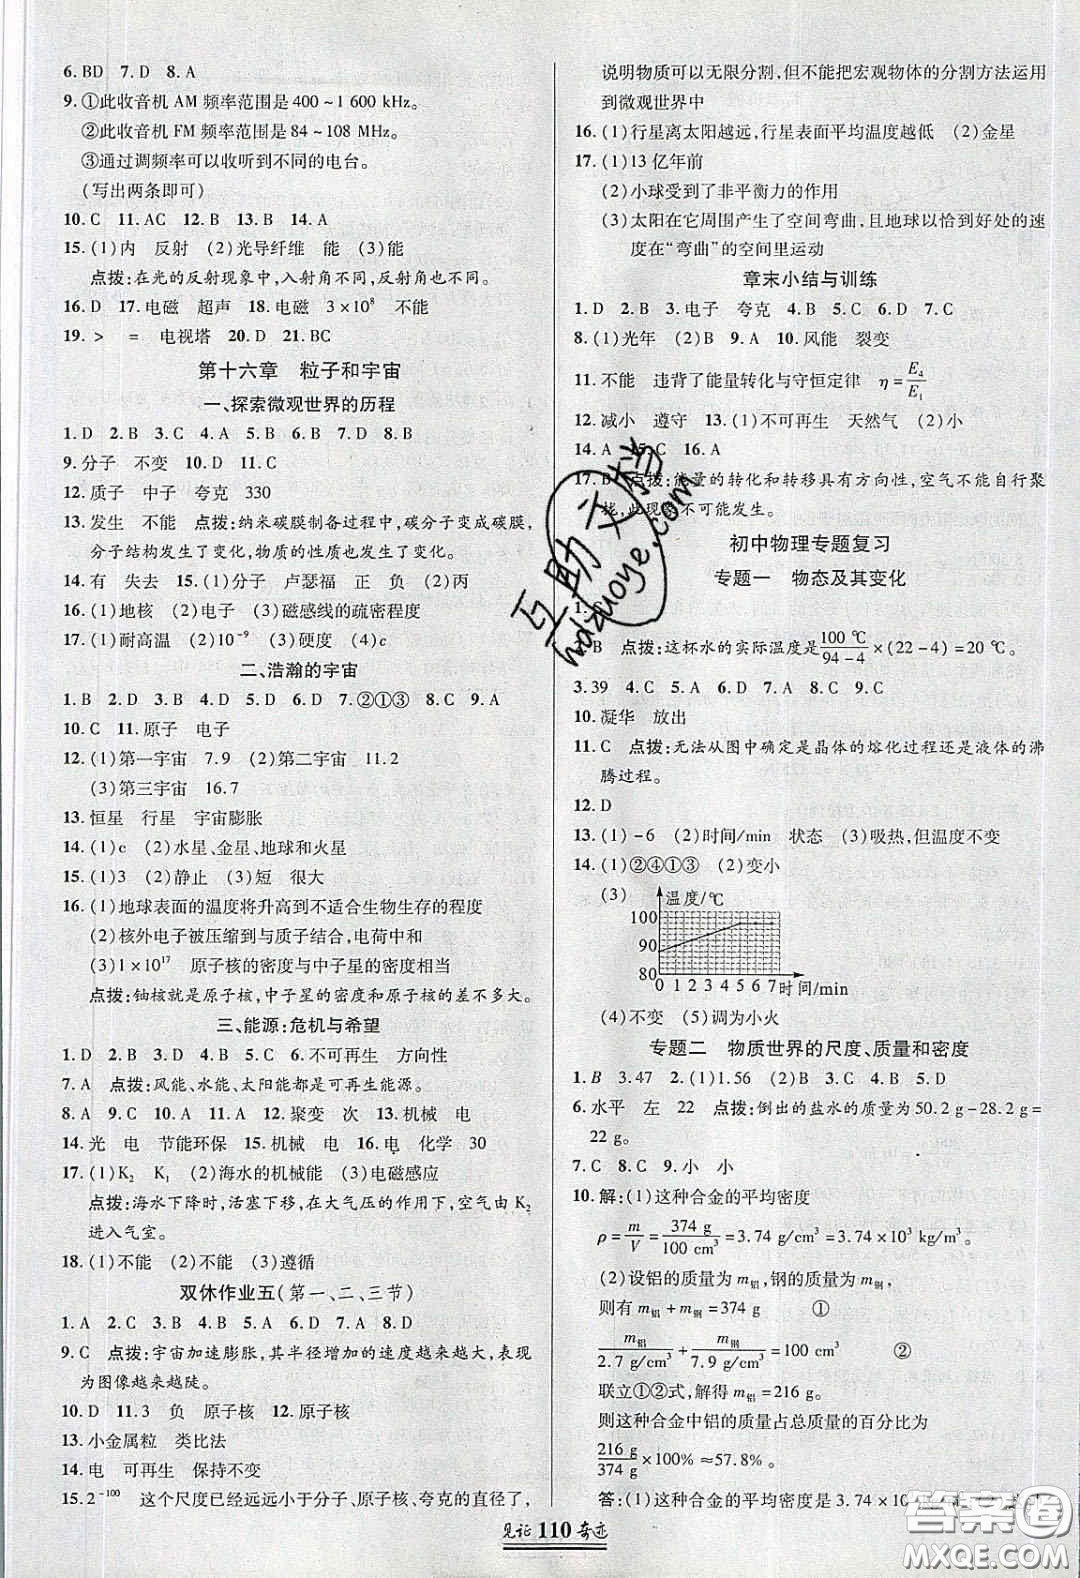 6.BD 7.D 8.A
9.①此收音机 AM 频率范围是 400~1 600 kHz。
②此收音机 FM 频率范围是 84~108 MHz。
③通过调频率可以收听到不同的电台。
(写出两条即可)
10.C 11.AC 12.B 13.B 14.A
15.(1)内 反射 (2)光导纤维 能 (3)能
点拨:在光的反射现象中,入射角不同,反射角不同。
16.D 17.电磁 超声 18.电磁 3×10⁸ 不能
19.> = 电视塔 20.D 21.BC
第十六章 粒子和宇宙
一、探索微观世界的历程
1.D 2.B 3.C 4.A 5.B 6.B 7.B 8.C
9.分子 不变 10.D 11.C
12.质子 中子 夸克 330
13.发生 不能 点拨:纳米碳膜制备过程中,碳分子变成碳膜,
分子结构发生了变化,物质的性质也发生了变化。
14.有 失去 15.(1)分子 卢瑟福 正 负 (2)丙
16.(1)地核 (2)电子 (3)磁感线的疏密程度
17.(1)耐高温 (2)10⁻⁹ (3)硬度 (4)c
二、浩瀚的宇宙
1.B 2.D 3.D 4.D 5.D 6.D 7.②①③ 8.C 9.A
10.C 11.原子 电子
12.(1)第一宇宙 7.9 (2)第二宇宙 11.2
(3)第三宇宙 16.7
13.恒星 行星 宇宙膨胀
14.(1)c (2)水星、金星、地球和火星
15.(1)3 (2)静止 (3)短 很大
16.(1)地球表面的温度将升高到不适合生物生存的程度
(2)核外电子被压缩到与质子结合,电荷中和
(3)1×10¹⁷ 原子核的密度与中子星的密度相当
点拨:铀核就是原子核,中子星的密度和原子核的差不多大。
三、能源:危机与希望
1.D 2.D 3.B 4.D 5.C 6.不可再生 方向性
7.A 点拨:风能、水能、太阳能都是可再生能源。
8.A 9.C 10.A 11.A 12.聚变 次 13.机械 电
14.光 电 节能环保 15.机械 电 16.电 化学 30
17.(1)K₂ K₁ (2)海水的机械能 (3)电磁感应
点拨:海水下降时,活塞下移,在大气压的作用下,空气由 K₂
进入气室。
18.(1)不能 (2)不能 (3)遵循
双休作业五(第一、二、三节)
1.A 2.D 3.B 4.B 5.A 6.A 7.A 8.D
9.C 点拨:宇宙加速膨胀,其半径增加的速度越来越大,表现
为图像越来越陡。
10.D 11.3 负 原子核 12.原子核
13.小金属粒 类比法
14.电 可再生 保持不变
15.2⁻¹⁰⁰ 这个尺度已经远远小于分子、原子核、夸克的直径了,
说明物质可以无限分割,但不能把宏观物体的分割方法运用
到微观世界中
16.(1)行星离太阳越远,行星表面平均温度越低 (2)金星
17.(1)13 亿年前
(2)小球受到了非平衡力的作用
(3)太阳在它周围产生了空间弯曲,且地球以恰到好处的速
度在“弯曲”的空间里运动
章末小结与训练
1.D 2.B 3.电子 夸克 4.C 5.D 6.D 7.C
8.(1)光年 (2)B 9.A 10.风能 裂变
11.不能 违背了能量转化与守恒定律 η=E₄/E₁
12.减小 遵守 13.(1)不可再生 天然气 (2)小
14.A 15.C 16.A
17.B 点拨:能量的转化和转移具有方向性,空气不能自行聚
拢,此现象不可能发生。
初中物理专题复习
专题一 物态及其变化
1.C
2.B 点拨:这杯水的实际温度是100 ℃/(94-4)×(22-4)=20 ℃。
3.39 4.C 5.A 6.D 7.D 8.A 9.C
10.凝华 放出
11.C 点拨:无法从图中确定是晶体的熔化过程还是液体的沸
腾过程。
12.D
13.(1)-6 (2)时间/min 状态 (3)吸热,但温度不变
14.(1)②④①③ (2)变小
(3) 温度/℃
100
90
80
0 1 2 3 4 5 6 7 时间/min
(4)不变 (5)调为小火
专题二 物质世界的尺度、质量和密度
1.B 3.47 2.(1)1.56 (2)12 3.A 4.B 5.D
6.水平 左 22 点拨:倒出的盐水的质量为 50.2 g-28.2 g=
22 g。
7.C 8.C 9.小 小
10.解:(1)这种合金的平均密度
ρ=m/V=374 g/100 cm³=3.74 g/cm³=3.74×10³ kg/m³。
(2)设铝的质量为 m铝,钢的质量为 m钢,
则有 m铝+m钢=374 g ①
m铝/2.7 g/cm³+m钢/7.9 g/cm³=100 cm³ ②
联立①②式,解得 m铝=216 g。
则这种合金中铝的质量占总质量的百分比为
216 g/374 g×100%≈57.8%。
答:(1)这种合金的平均密度是 3.74×10
见证 110 奇迹
互助文档
hdzuoye.com
答案圈
MXQE.COM